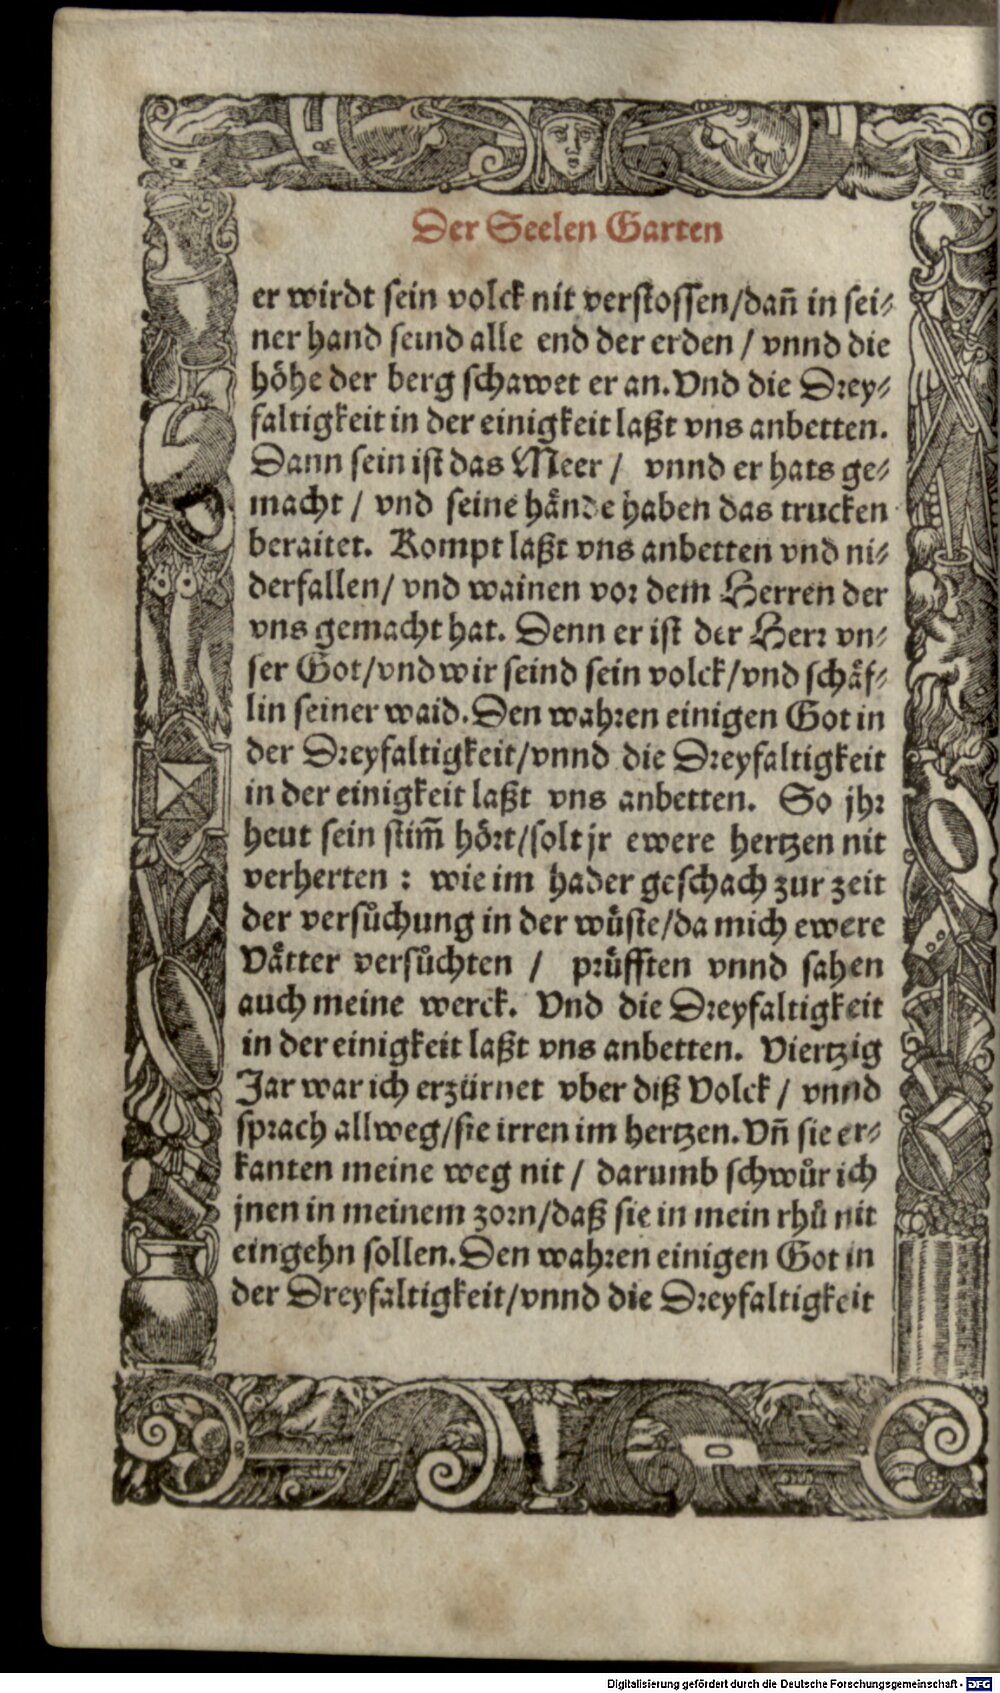 Der Seelen Garten
er wirdt sein volck nit verstossen/dañ in sei⸗
ner hand seind alle end der erden / vnnd die
hoͤhe der berg schawet er an. Vnd die Drey⸗
faltigkeit in der einigkeit laßt vns anbetten.
Dann sein ist das Meer / vnnd er hats ge⸗
macht / vnd seine haͤnde haben das trucken
beraitet. Kompt laßt vns anbetten vnd ni⸗
derfallen/ vnd wainen vor dem Herren der
vns gemacht hat. Denn er ist der Herr vn⸗
ser Got/vnd wir seind sein volck/vnd schaͤf⸗
lin seiner waid. Den wahren einigen Got in
der Dreyfaltigkeit/vnnd die Dreyfaltigkeit
in der einigkeit laßt vns anbetten. So jhr
heut sein stim̃ hoͤrt/solt jr ewere hertzen nit
verherten : wie im hader geschach zur zeit
der versuͦchung in der wuͤste/da mich ewere
Vaͤtter versuͦchten / pruͤfften vnnd sahen
auch meine werck. Vnd die Dreyfaltigkeit
in der einigkeit laßt vns anbetten. Viertzig
Jar war ich erzürnet vber diß Volck / vnnd
sprach allweg/sie irren im hertzen. Vñ sie er⸗
kanten meine weg nit / darumb schwuͦr ich
jnen in meinem zorn/daß sie in mein rhuͦ nit
eingehn sollen. Den wahren einigen Got in
der Dreyfaltigkeit/vnnd die Dreyfaltigkeit
Digitalisierung gefördert durch die Deutsche Forschungsgemeinschaft - DFG